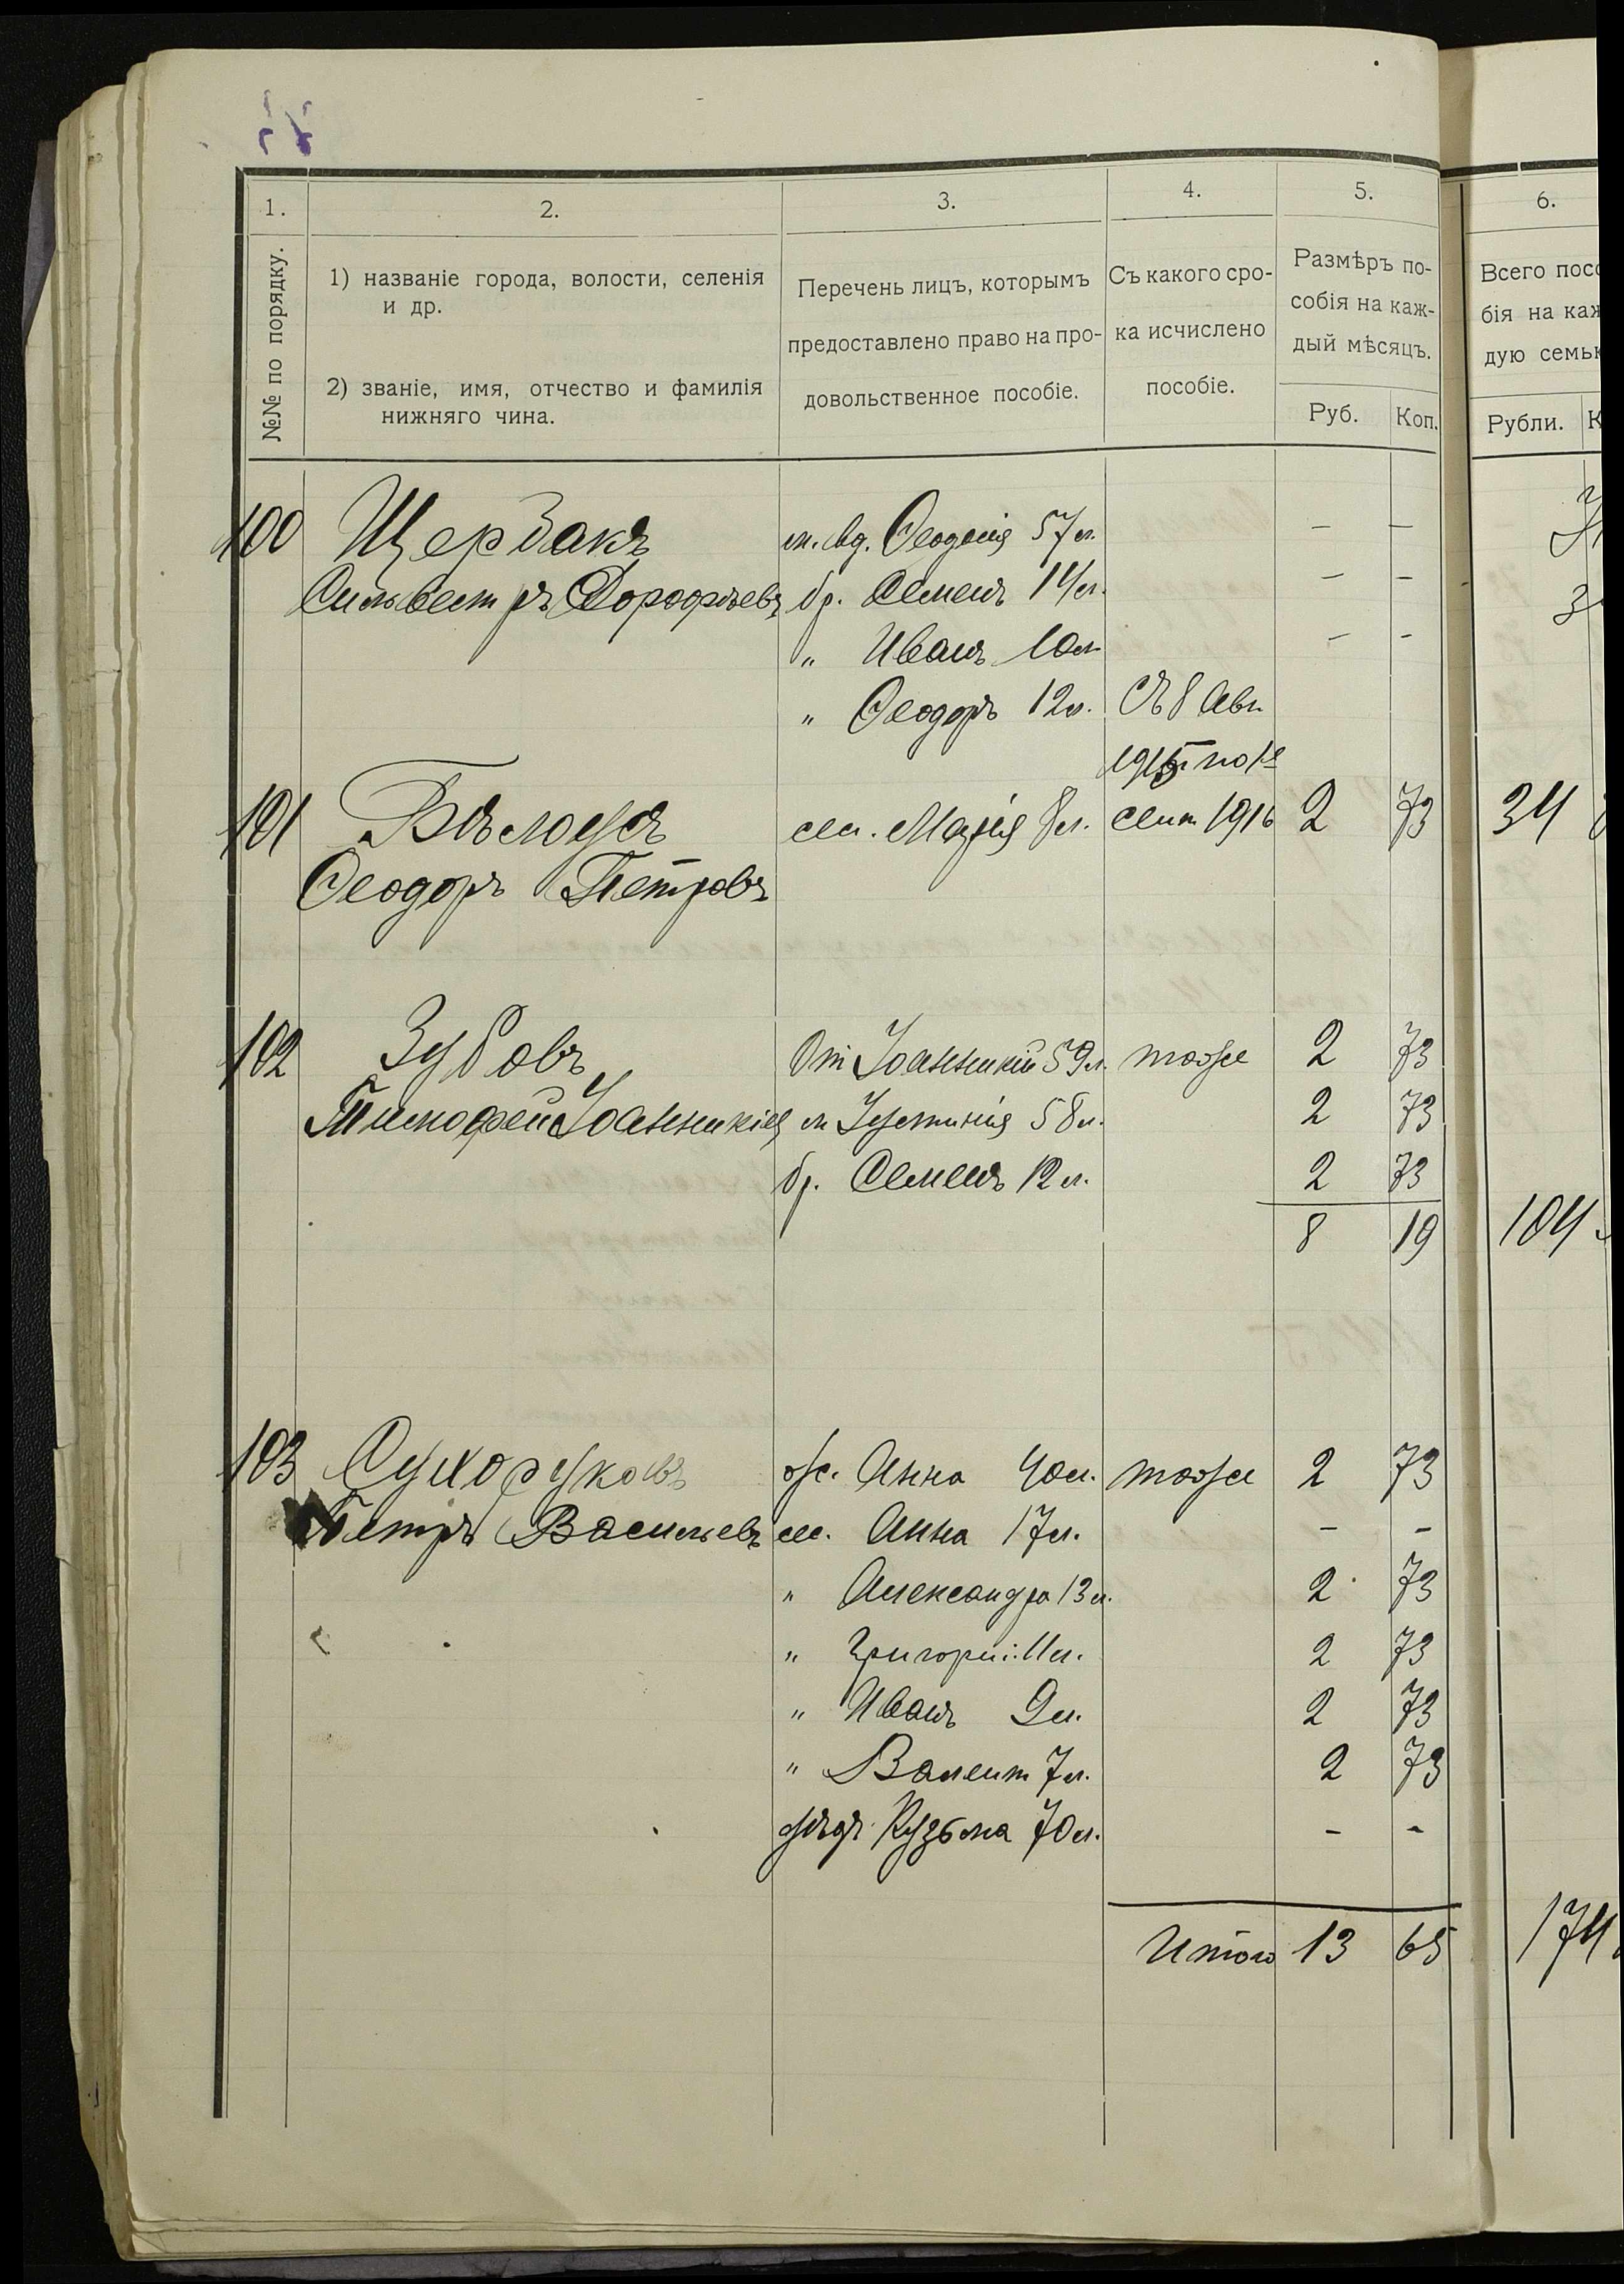 1. 2. 3. 4. 5. 6.
№№ по порядку.
1) названіе города, волости, селенія
и др.
2) званіе, имя, отчество и фамилія
нижняго чина.
Перечень лицъ, которымъ
предоставлено право на про-
довольственное пособіе.
Съ какого сро-
ка исчислено
пособіе.
Размѣръ по-
собія на каж-
дый мѣсяцъ.
Руб. Коп.
Всего посо
бія на каж
дую семью
Рубли. К
100 Щербакъ м. вд. Ѳеодосія 57 л. — —
Сильвестръ Дорофѣевъ бр. Семенъ 14 л. — —
" Иванъ 10 л. — -
" Ѳеодоръ 12 л. Съ 8 Авг.
1915 г. по 1е
101 Бѣлоусъ сес. Марія 8 л. сент 1916 2 73 34
Ѳеодоръ Петровъ
102 Зубовъ От Іоанникій 59 л. тоже 2 73
Тимофей Іоанникіев м Устинія 58 л. 2 73
бр. Семенъ 12 л. 2 73
8 19 104
103 Сухоруковъ ж. Анна 40 л. тоже 2 73
Петръ Васильевъ сес. Анна 17 л. - -
" Александра 13 л. 2 73
" Григорій 11 л. 2 73
" Иванъ 9 л. 2 73
" Валент 7 л. 2 73
дѣдъ Кузьма 70 л. - -
Итого 13 65 174